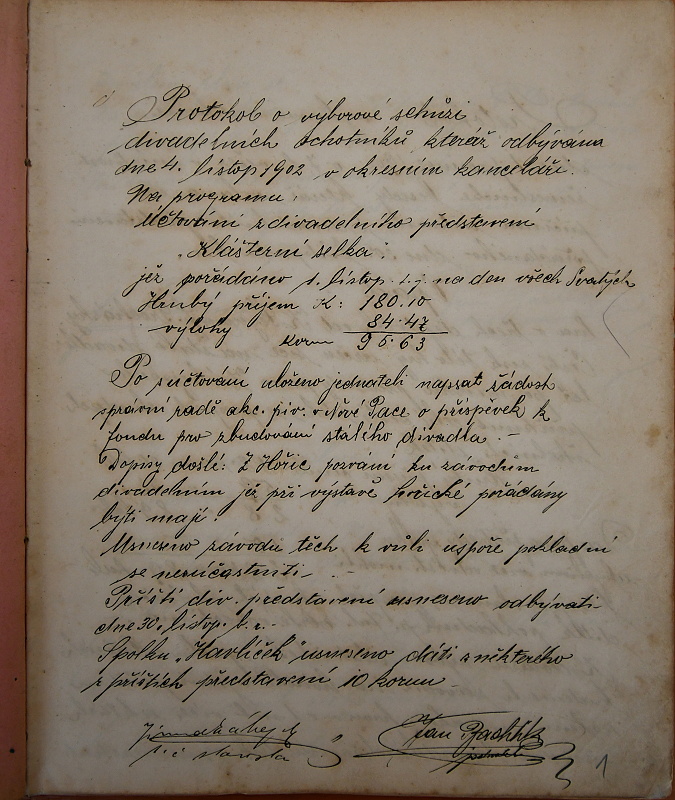 Protokol o výborové schůzi
divadelních ochotníků, kteráž odbývána
dne 4. listop 1902 v okresním kanceláři.
Na programu:
Účtování z divadelního představení
"Klášterní selka",
jež pořádáno 1. listop. t. j. na den všech Svatých
Hrubý příjem K: 180.10
výlohy 84.47
Korun 95.63
Po súčtování uloženo jednateli napsat žádost
správní radě akc. piv. v Nové Pace o příspěvek k
fondu pro zbudování stálého divadla. –
Dopisy došlé: Z Hořic pozvání ku závodům
divadelním jež při výstavě hořické pořádány
býti mají.
Usneseno závodů těch k vůli úspoře pokladní
se nezúčastniti. –
Příští div. představení usneseno odbývati
dne 30. listop. b. r. –
Spolku "Havlíček" usneseno dáti z některého
z příštích představení 10 korun –
Jan
starosta
1